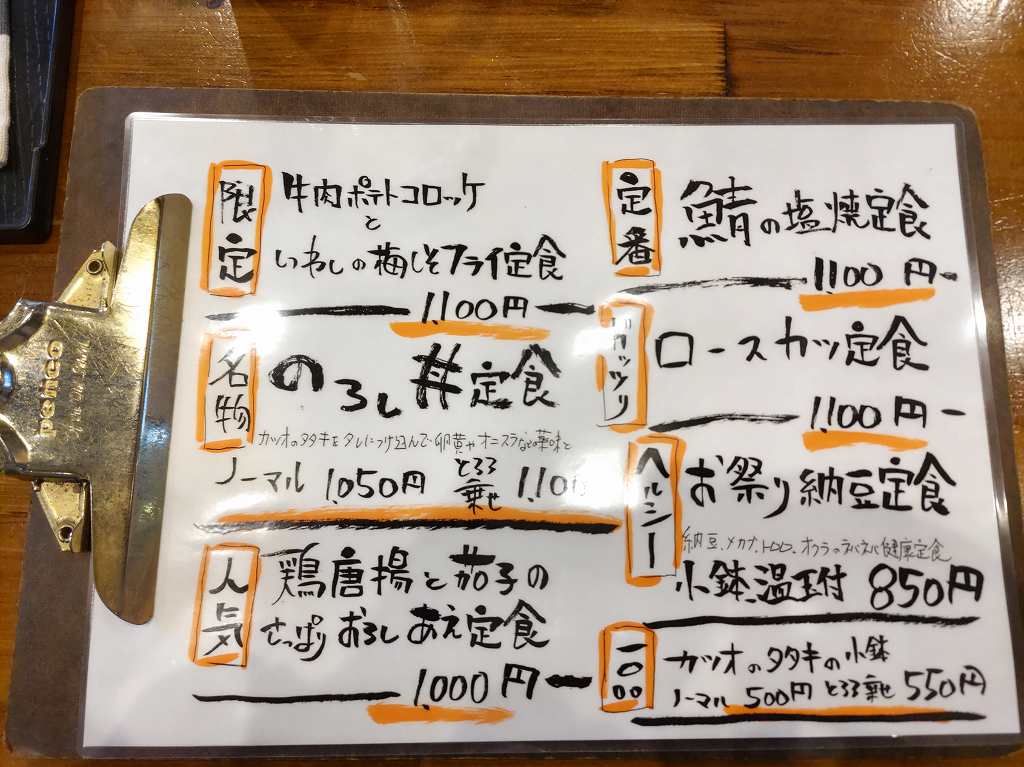 限定
牛肉ポテトコロッケ
と
いわしの梅しそフライ定食
1,100円
名物
のろし丼定食
カツオのタタキをタレにつけ込んで卵黄やオニスラなどの薬味と
ノーマル 1,050円 とろろ乗せ 1,10
人気
鶏唐揚と茄子の
さっぱりおろしあえ定食
1,000円
定番
鯖の塩焼定食
1,100円
ガッツリ
ロースカツ定食
1,100円
ヘルシー
お祭り納豆定食
納豆、メカブ、トロロ、オクラのネバネバ健康定食
小鉢、温玉付 850円
一品
カツオのタタキの小鉢
ノーマル 500円 とろろ乗せ 550円
penco